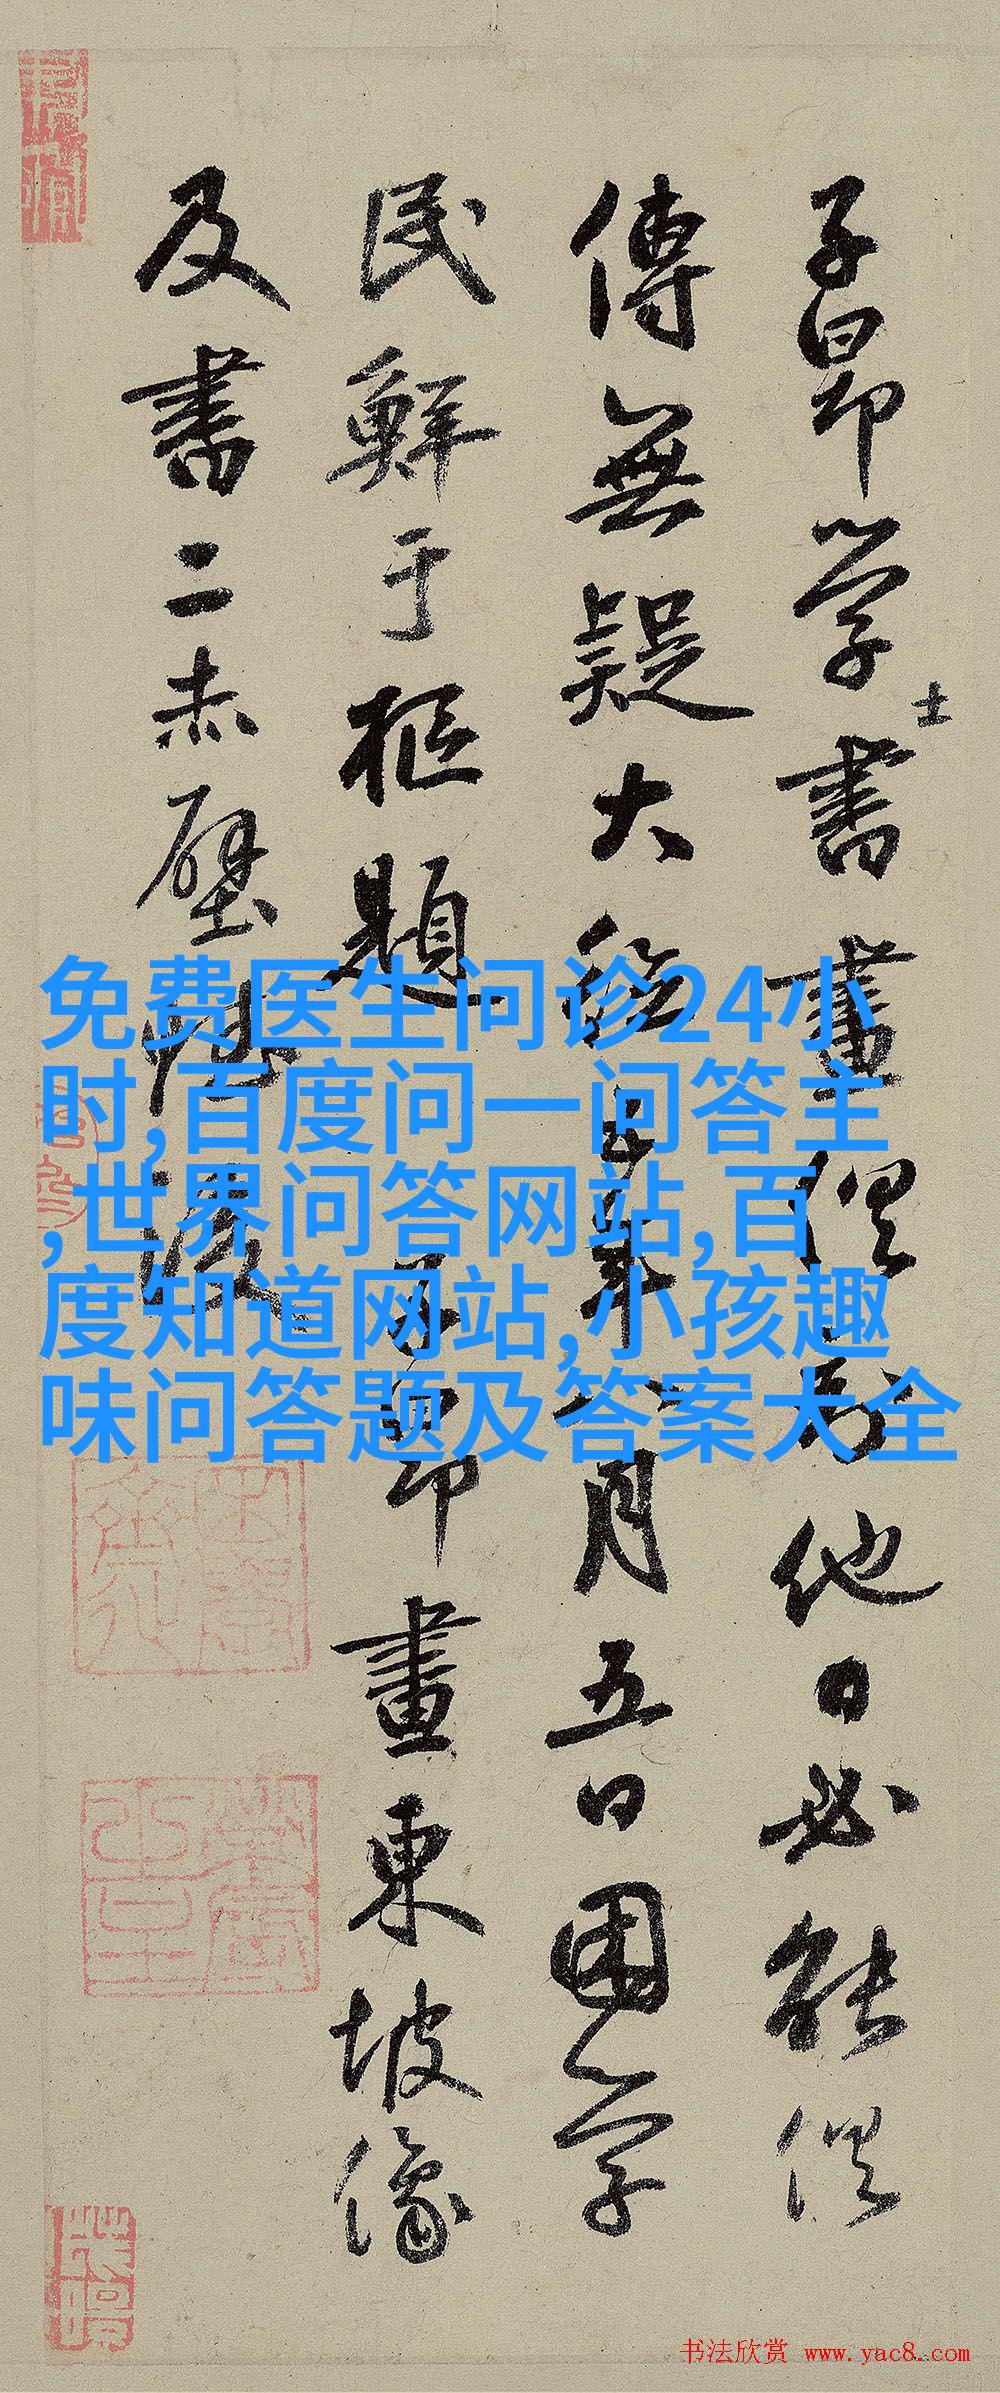 子昂學書畫俱形他日必能俱
士
傳無疑大德五年八月五日困學
民鮮于樞題子昂畫東坡像
及書二赤壁
免费医生问诊24小
时,百度问一问答主
,世界问答网站,百
度知道网站,小孩趣
味问答题及答案大全
书法欣赏 www.yac8.com